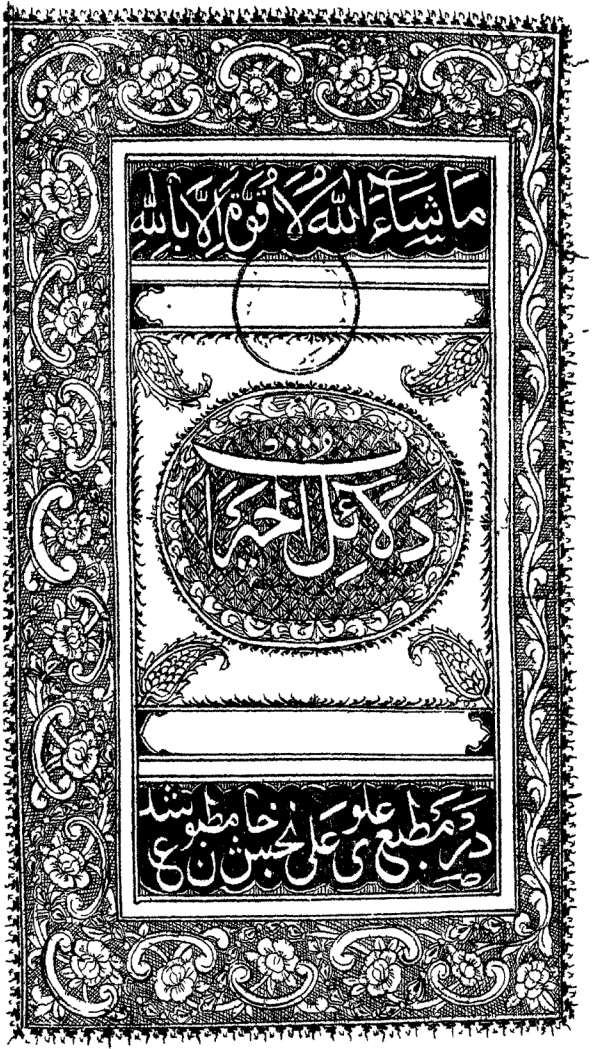 مَا شَاءَ اللهُ لَا قُوَّةَ إِلَّا بِاللهِ
دَلَائِل الخَيرَات
در مطبع علوی علی بخش خان مطبوع شد